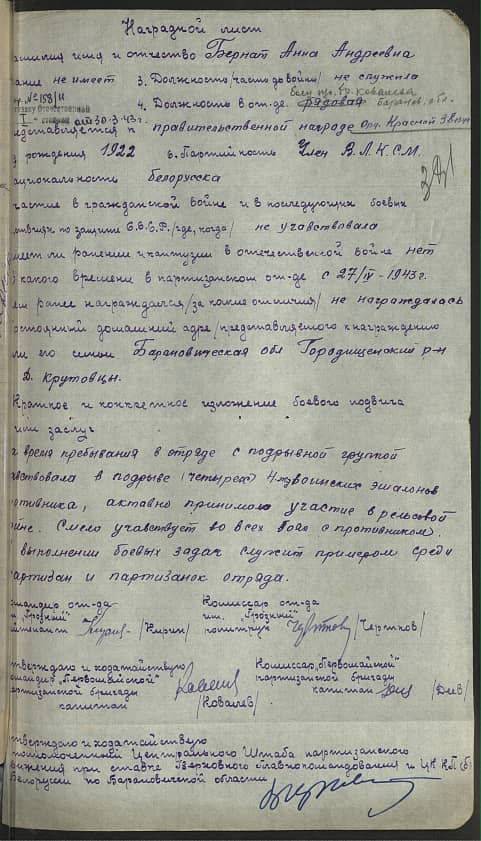 Наградной лист
амилия имя и отчество Бернат Анна Андреевна
ание не имеет 3. Должность/часть до войны/ не служила
№ 158/н
Отечественной
I - степени от 30-3-43 г.
боец пр. бр. Ковалева
4. Должность в от-де. рядовая баранов. обл.
едставляется к правительственной награде Орд. Красной Звезды
д рождения 1922 6. Партийность Член В.Л.К.С.М.
ациональность белорусска
частие в гражданской войне и в последующих боевых
ствиях по защите С.С.С.Р./где, когда/ не учавствовала
меет ли ранение и контузии в отечественной войне нет
какого времени в партизанском от-де с 27/IV-1943 г.
ем ранее награждался/за какие отличия/ не награждалась
остоянный домашний адре/представляемого к награждению
ли его семьи Барановическая обл Городищенский р-н
Д. Крутовцы.
Краткое и конкретное изложение боевого подвига
или заслуг
а время пребывания в отряде с подрывной группой
авствовала в подрыве (четырех) 4х воинских эшалонов
отивника, активно принимала участие в рельсовой
ойне. Смело учавствует во всех боях с противником.
выполнении боевых задач служит примером среди
артизан и партизанок отряда.
омандир от-да
м "Грозный"
йтенант /Кирин/
Комиссар от-да
им. "Грозный"
политрук /Чертков/
тверждаю и ходатайствую
омандир "Первомайской"
артизанской бригады
капитан /Ковалев/
Комиссар "Первомайской"
партизанской бригады
капитан /Диев/
тверждаю и ходатайствую
полномоченный Центрального Штаба партизанского
вижения при ставке Верховного Главнокомандования и ЦК КП(б)
Белоруссии по Барановичской области